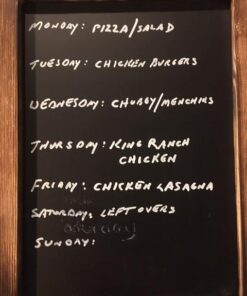 MONDAY: PIZZA/SALAD
TUESDAY: CHICKEN BURGERS
WEDNESDAY: CHUBBY/MENCHIES
THURSDAY: KING RANCH
CHICKEN
FRIDAY: CHICKEN LASAGNA
SATURDAY: LEFTOVERS
SUNDAY: